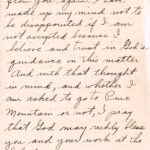 from you, again. I have
made up my mind not to
be disappointed if I am
not accepted because I
believe and trust in God's
guidance in this matter.
And with that thought
in mind, and whether I
am asked to go to Pine
Mountain or not, I pray
that God may richly bless
you and your work at the